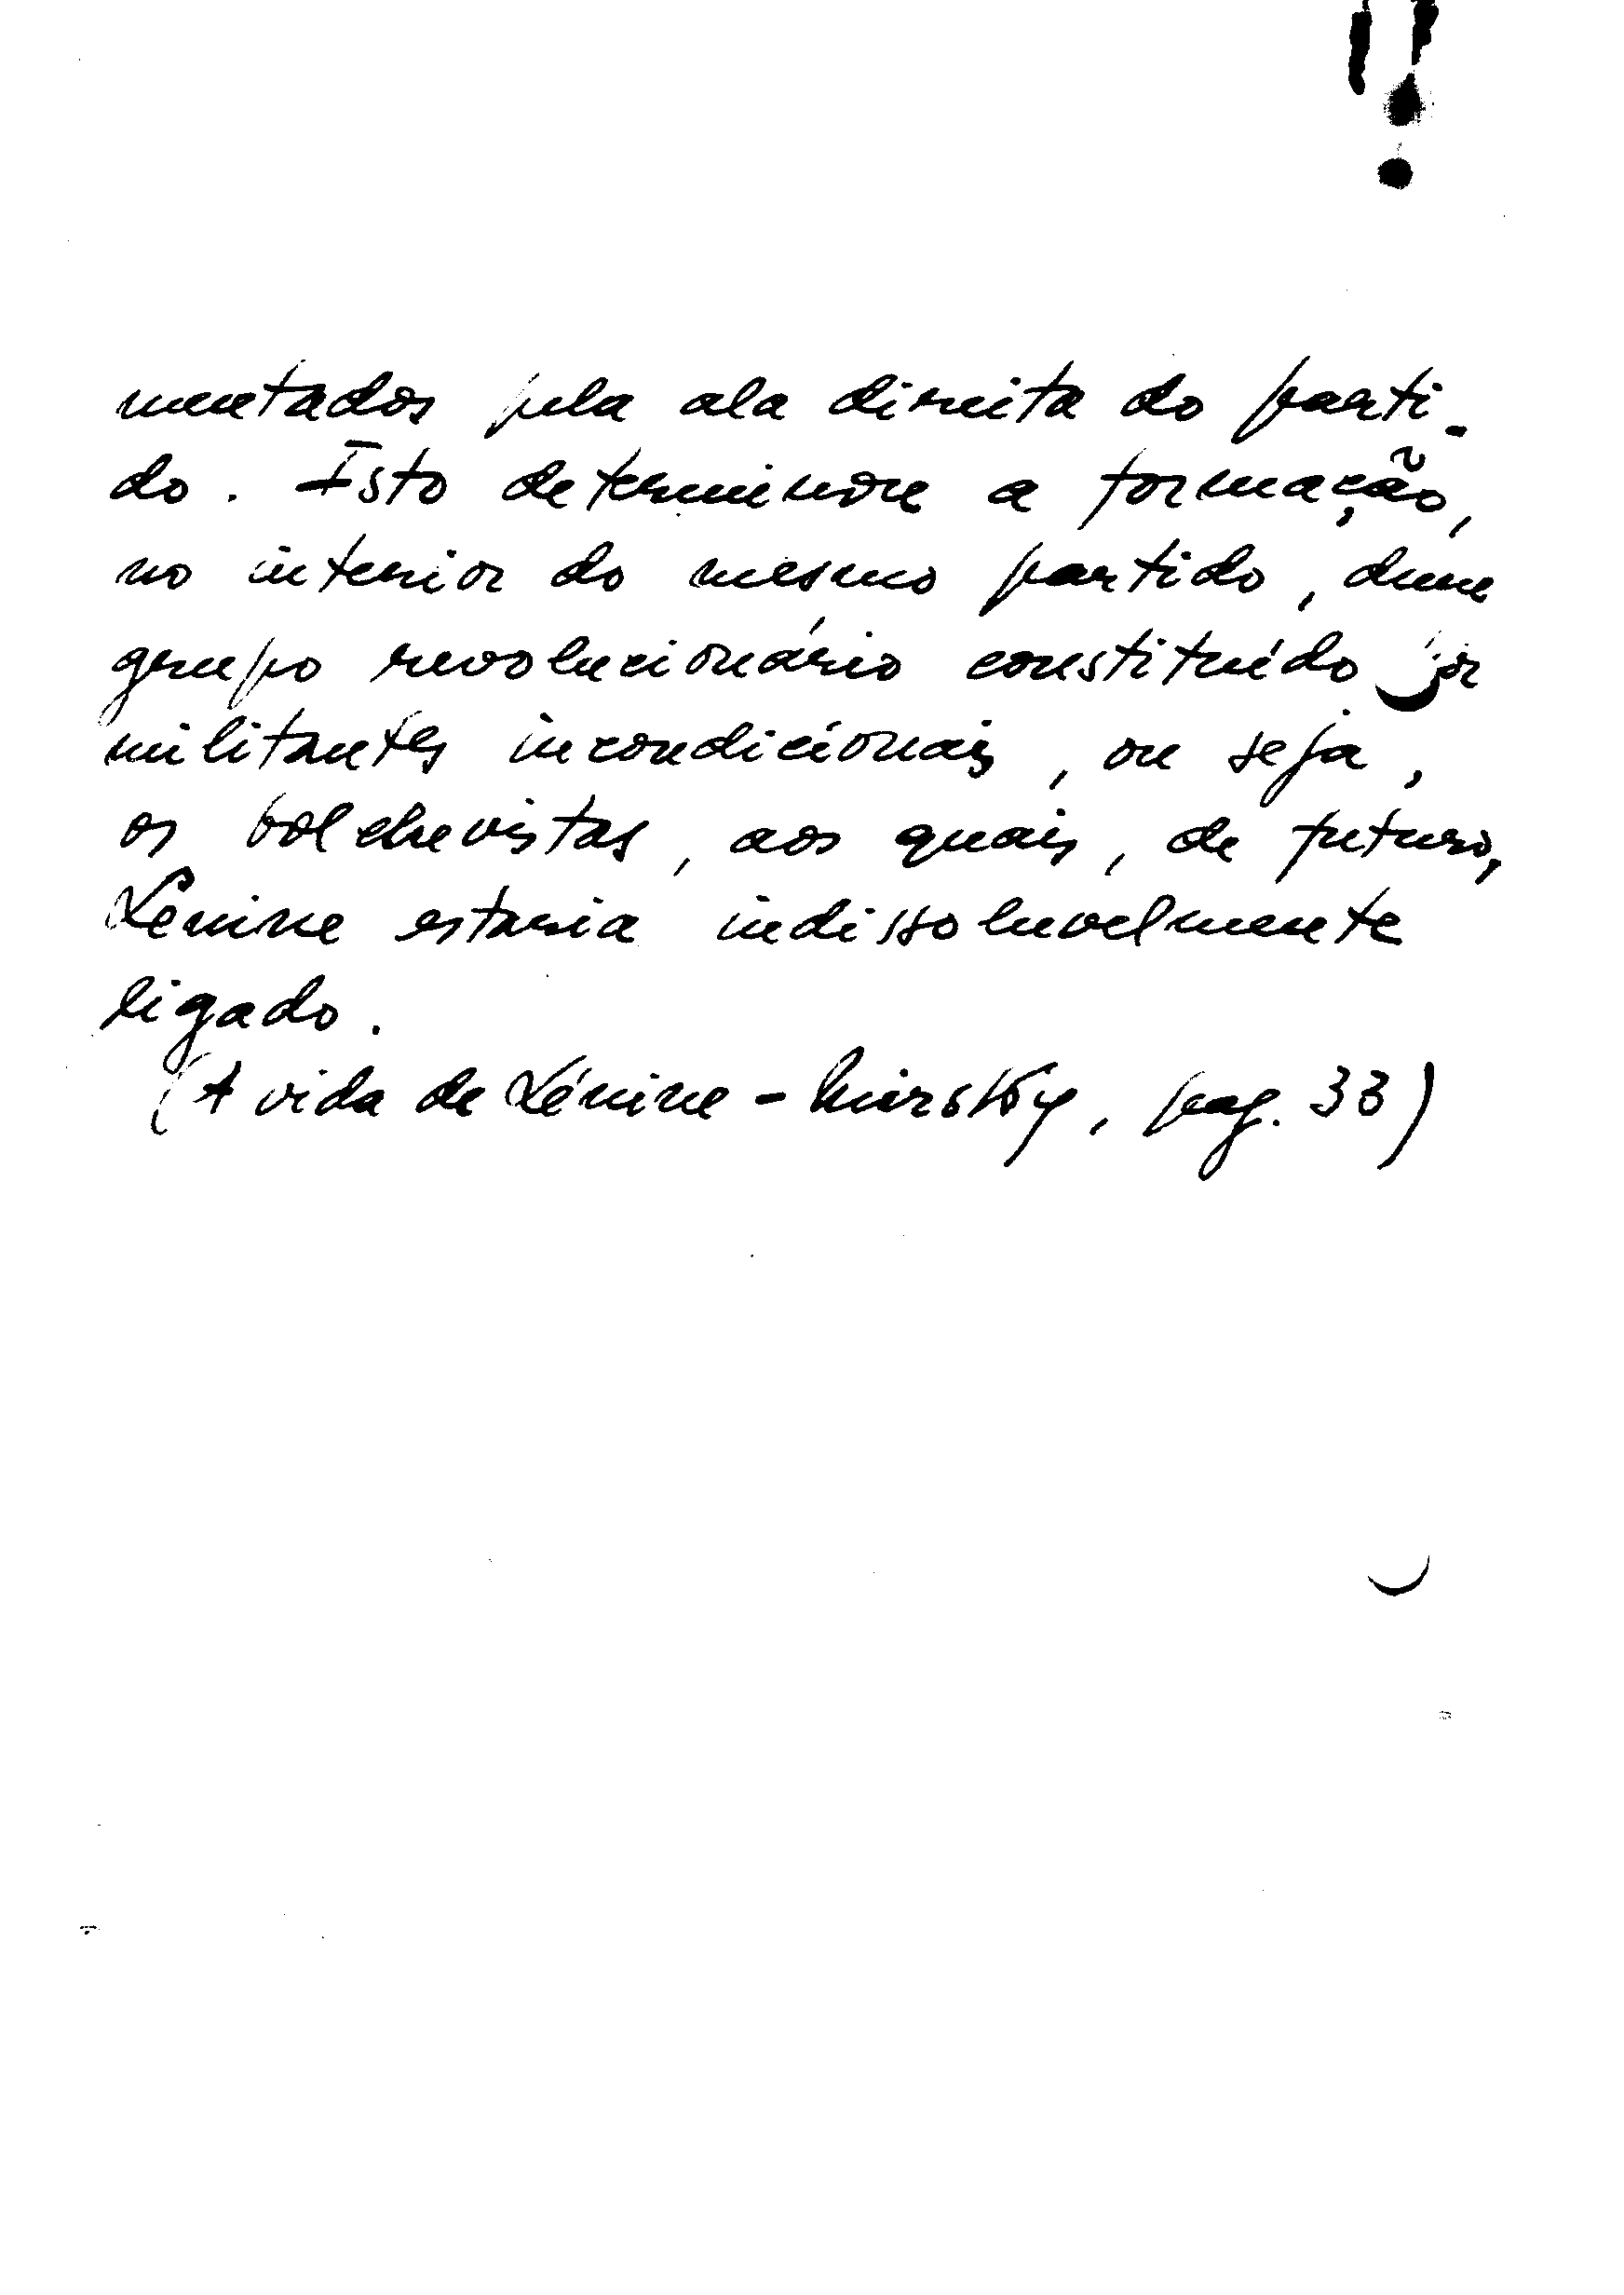 mentados pela ala direita do parti-
do. Isto determinou a formação,
no interior do mesmo partido, dum
grupo revolucionário constituído por
militantes incondicionais, ou seja,
os bolchevistas, aos quais, de futuro,
Lenine estaria indissoluvelmente
ligado.
(A vida de Lénine - Mirsky, pag. 33)